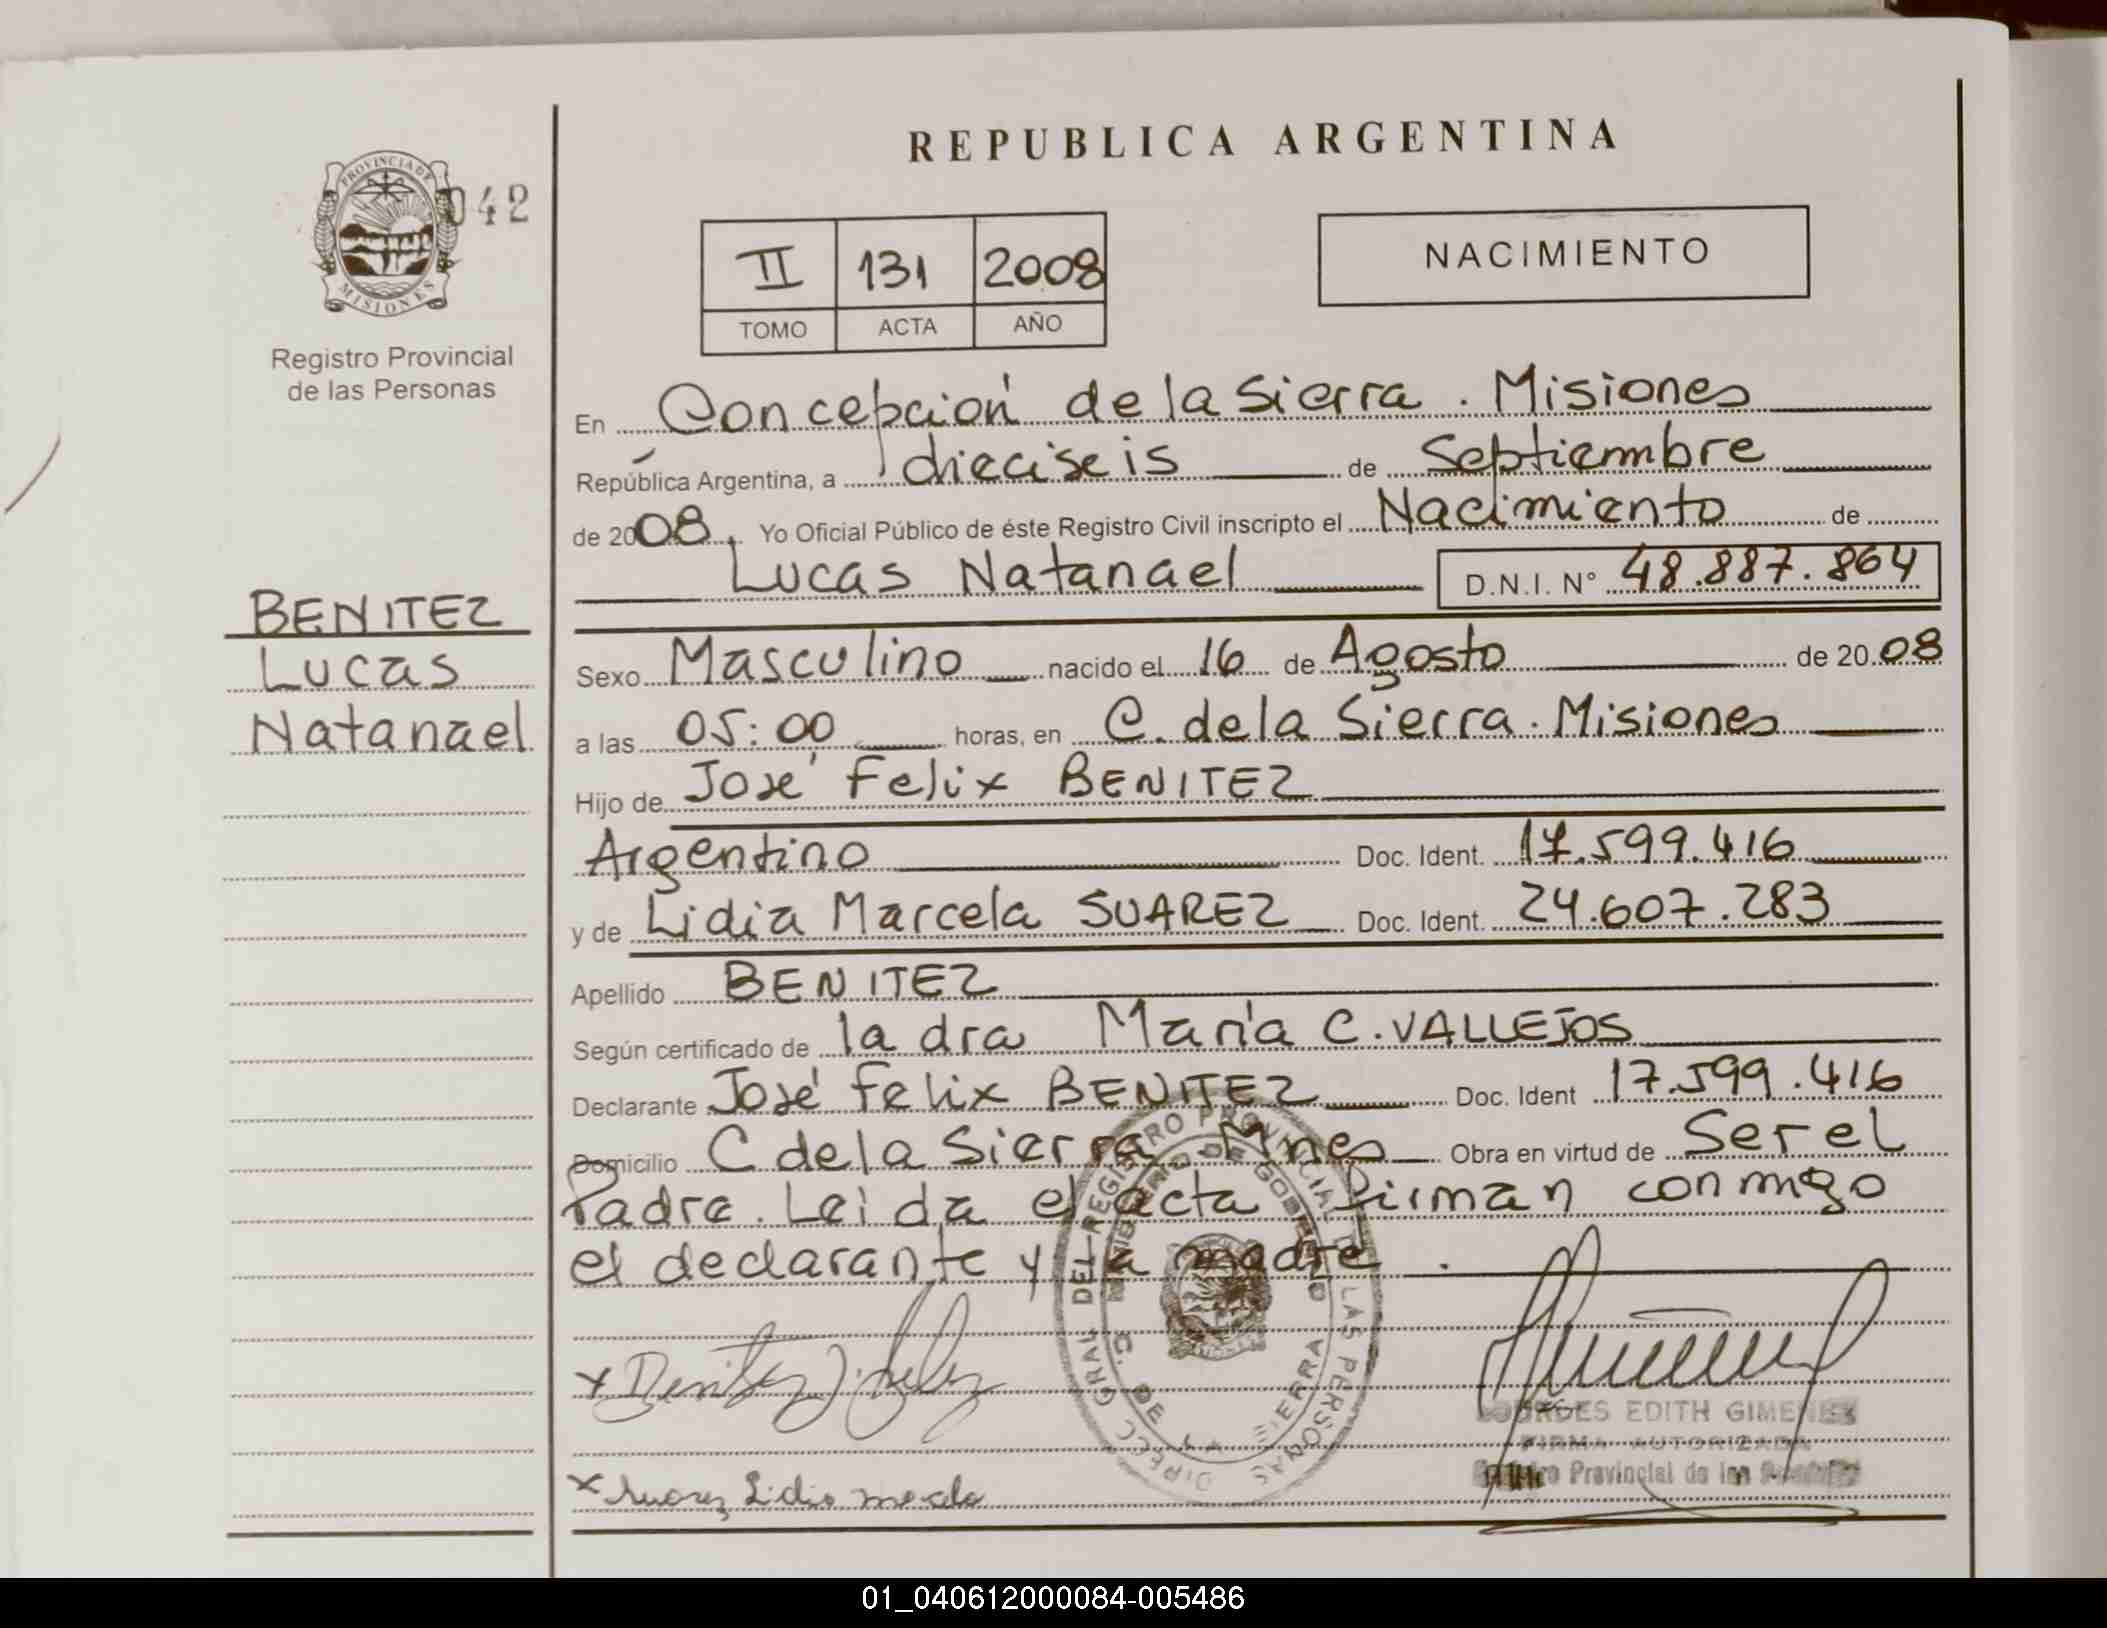 REPUBLICA ARGENTINA
PROVINCIA DE
MISIONES
042
Registro Provincial
de las Personas
II 131 2008
TOMO ACTA AÑO
NACIMIENTO
En Concepción de la Sierra . Misiones
República Argentina, a dieciseis de Septiembre
de 2008. Yo Oficial Público de éste Registro Civil inscripto el Nacimiento de
Lucas Natanael D.N.I. N° 48.887.864
BENITEZ
Lucas
Natanael
Sexo Masculino nacido el 16 de Agosto de 2008
a las 05:00 horas, en C. de la Sierra . Misiones
Hijo de José Felix BENITEZ
Argentino Doc. Ident. 17.599.416
y de Lidia Marcela SUAREZ Doc. Ident. 24.607.283
Apellido BENITEZ
Según certificado de la dra María C. VALLEJOS
Declarante José Felix BENITEZ Doc. Ident 17.599.416
Domicilio C de la Sierra Mnes Obra en virtud de Ser el
Padre. Leida el acta firman conmigo
el declarante y la madre .
DIRECC GRAL DEL REGISTRO PROVINCIAL DE LAS PERSONAS
MINISTERIO DE GOBIERNO
C. DE LA SIERRA
x Benitez J. Felix
x Suarez Lidia
LOURDES EDITH GIMENEZ
FIRMA AUTORIZADA
Registro Provincial de las Personas
01_040612000084-005486